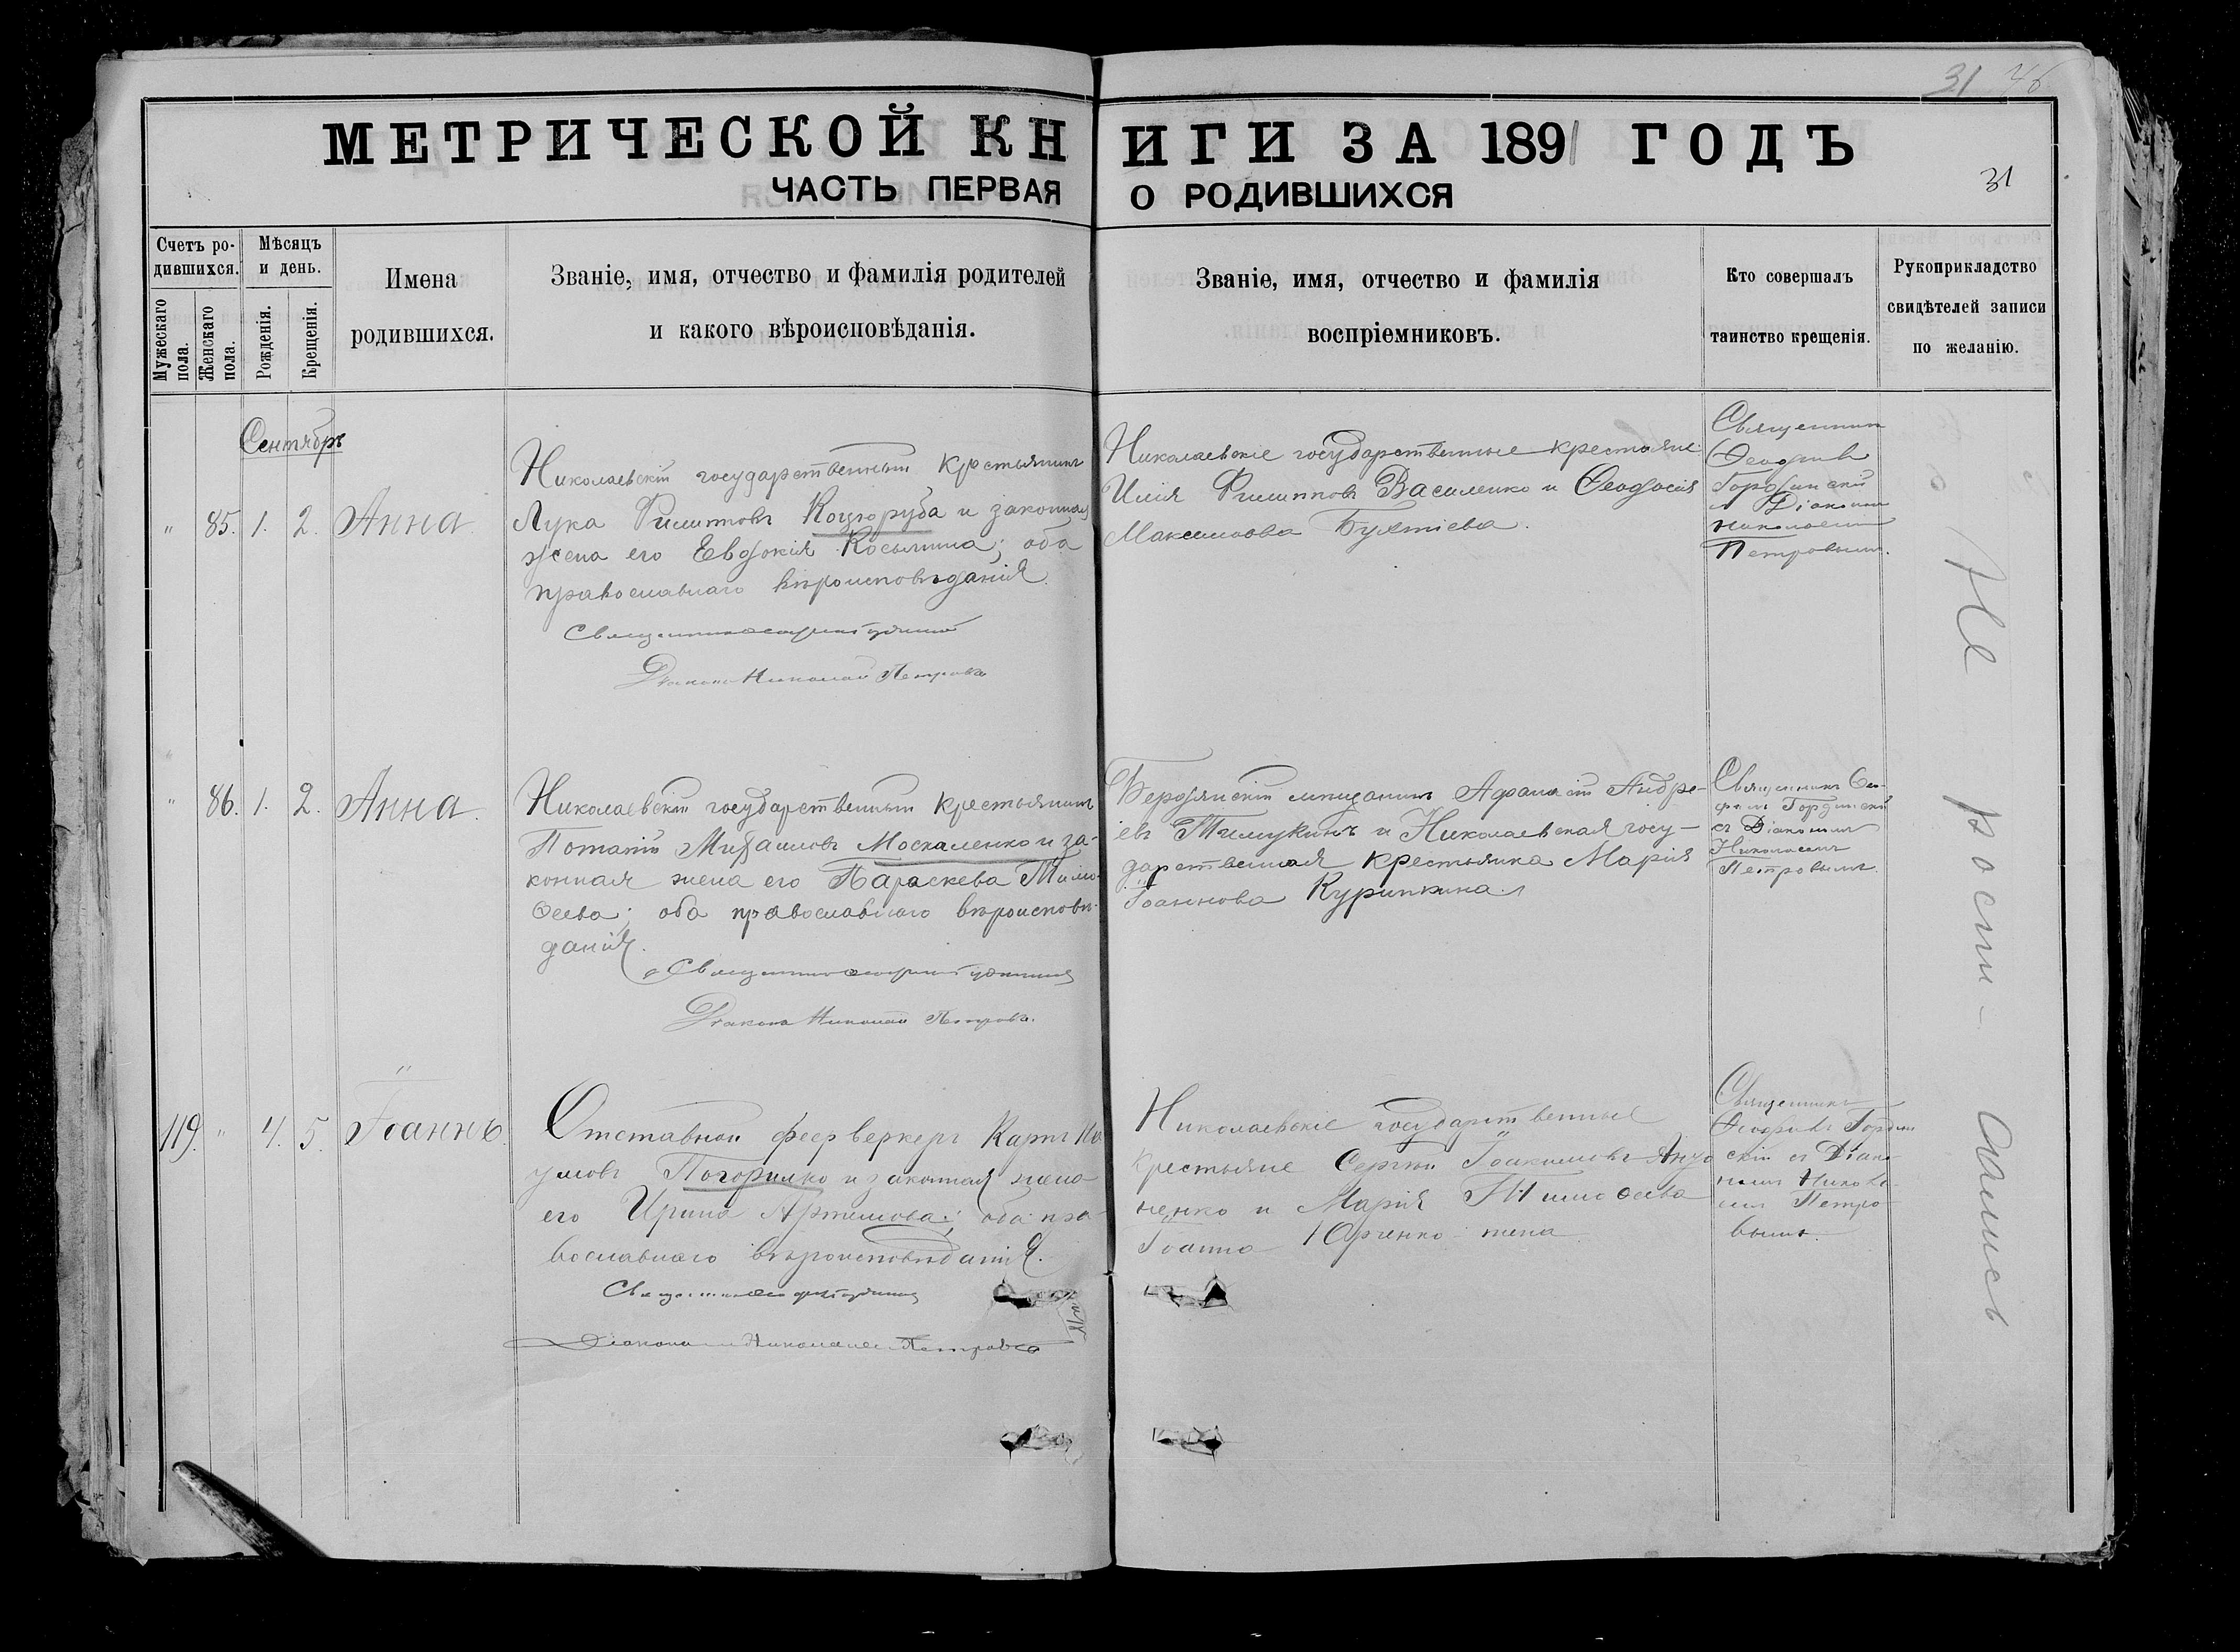 31 46
МЕТРИЧЕСКОЙ КНИГИ ЗА 1891 ГОДЪ
ЧАСТЬ ПЕРВАЯ О РОДИВШИХСЯ
31
Счетъ родившихся.
Мужескаго пола.
Женскаго пола.
Мѣсяцъ и день.
Рожденія.
Крещенія.
Имена
родившихся.
Званіе, имя, отчество и фамилія родителей
и какого вѣроисповѣданія.
Званіе, имя, отчество и фамилія
воспріемниковъ.
Кто совершалъ
таинство крещенія.
Рукоприкладство
свидѣтелей записи
по желанію.
Сентябрь
" 85. 1. 2. Анна.
Николаевскій государственный крестьянинъ
Лука Филипповъ Коцюруба и законная
жена его Евдокія Косьмина; оба
православнаго вѣроисповѣданія.
Діаконъ Николай Петровъ
Николаевскіе государственные крестьяне:
Илія Филипповъ Василенко и Ѳеодосія
Максимова Бухтіева.
Священникъ
Ѳеофилъ
Гординскій
Діакономъ
Николаемъ
Петровымъ.
" 86. 1. 2. Анна.
Николаевскій государственный крестьянинъ
Потапій Михаиловъ Москаленко и за-
конная жена его Параскева Тимо-
ѳеева; оба православнаго вѣроисповѣ-
данія.
Діаконъ Николай Петровъ.
Бердянскій мѣщанинъ Аѳанасій Андре-
евъ Тимукинъ и Николаевская госу-
дарственная крестьянка Марія
Іоаннова Курипкина.
Священникъ Ѳео-
филъ Гординскій
съ Діакономъ
Николаемъ
Петровымъ.
119. " 4. 5. Іоаннъ.
Отставной феерверкеръ Карпъ На-
умовъ Погорилко и законная жена
его Ирина Артемова; оба пра-
вославнаго вѣроисповѣданія.
Діаконъ Николай Петровъ
Николаевскіе государственные
крестьяне Сергѣй Іоакимовъ
ненко и Марія Тимоѳеева
Іоанна Юрченко жена.
Священникъ
Ѳеофилъ Гордин-
скій съ Діако-
номъ Никола-
емъ Петро-
вымъ.